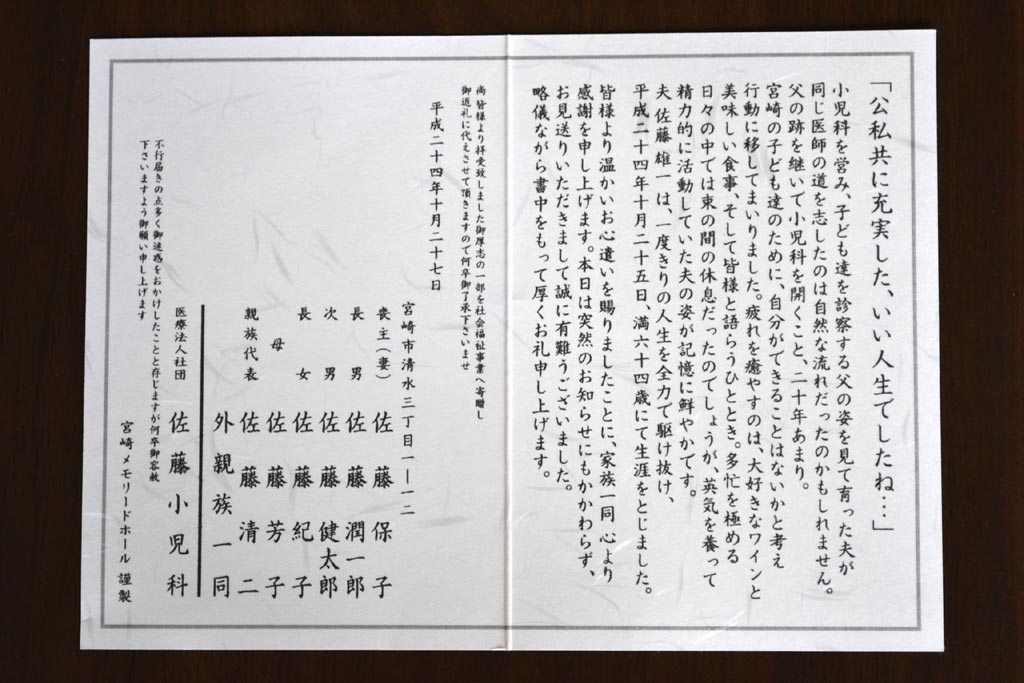 「公私共に充実した、いい人生でしたね…」
小児科を営み、子ども達を診察する父の姿を見て育った夫が
同じ医師の道を志したのは自然な流れだったのかもしれません。
父の跡を継いで小児科を開くこと、二十年あまり。
宮崎の子ども達のために、自分ができることはないかと考え
行動に移してまいりました。疲れを癒やすのは、大好きなワインと
美味しい食事、そして皆様と語らうひととき。多忙を極める
日々の中では束の間の休息だったのでしょうが、英気を養って
精力的に活動していた夫の姿が記憶に鮮やかです。
夫 佐藤 雄一 は、一度きりの人生を全力で駆け抜け、
平成二十四年十月二十五日、満六十四歳にて生涯をとじました。
皆様より温かいお心遣いを賜りましたことに、家族一同 心より
感謝を申し上げます。本日は突然のお知らせにもかかわらず、
お見送りいただきまして誠に有難うございました。
略儀ながら書中をもって厚くお礼申し上げます。
尚 皆様より拝受致しました御厚志の一部を社会福祉事業へ寄贈し
御返礼に代えさせて頂きますので何卒御了承下さいませ
平成二十四年十月二十七日
宮崎市清水三丁目一―一二
喪主(妻) 佐藤保子
長男 佐藤潤一郎
次男 佐藤健太郎
長女 佐藤紀子
母 佐藤芳子
親族代表 佐藤清二
外親族一同
医療法人社団 佐藤小児科
不行届きの点多く御迷惑をおかけしたことと存じますが何卒御容赦
下さいますよう御願い申し上げます
宮崎メモリードホール 謹製